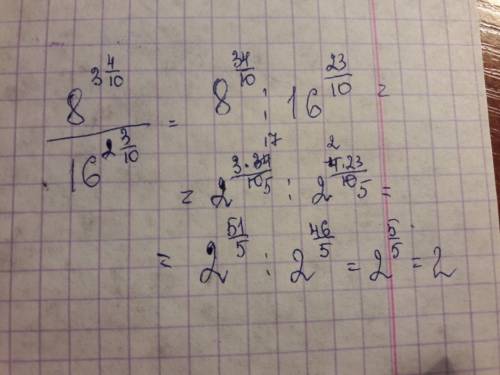 8^{3\frac{4}{10}} / 16^{2\frac{3}{10}} = 8^{\frac{34}{10}} : 16^{\frac{23}{10}} =
= 2^{\frac{3·34}{10}} : 2^{\frac{4·23}{10}} = 17 5 2 5
= 2^{\frac{51}{5}} : 2^{\frac{46}{5}} = 2^{\frac{5}{5}} = 2